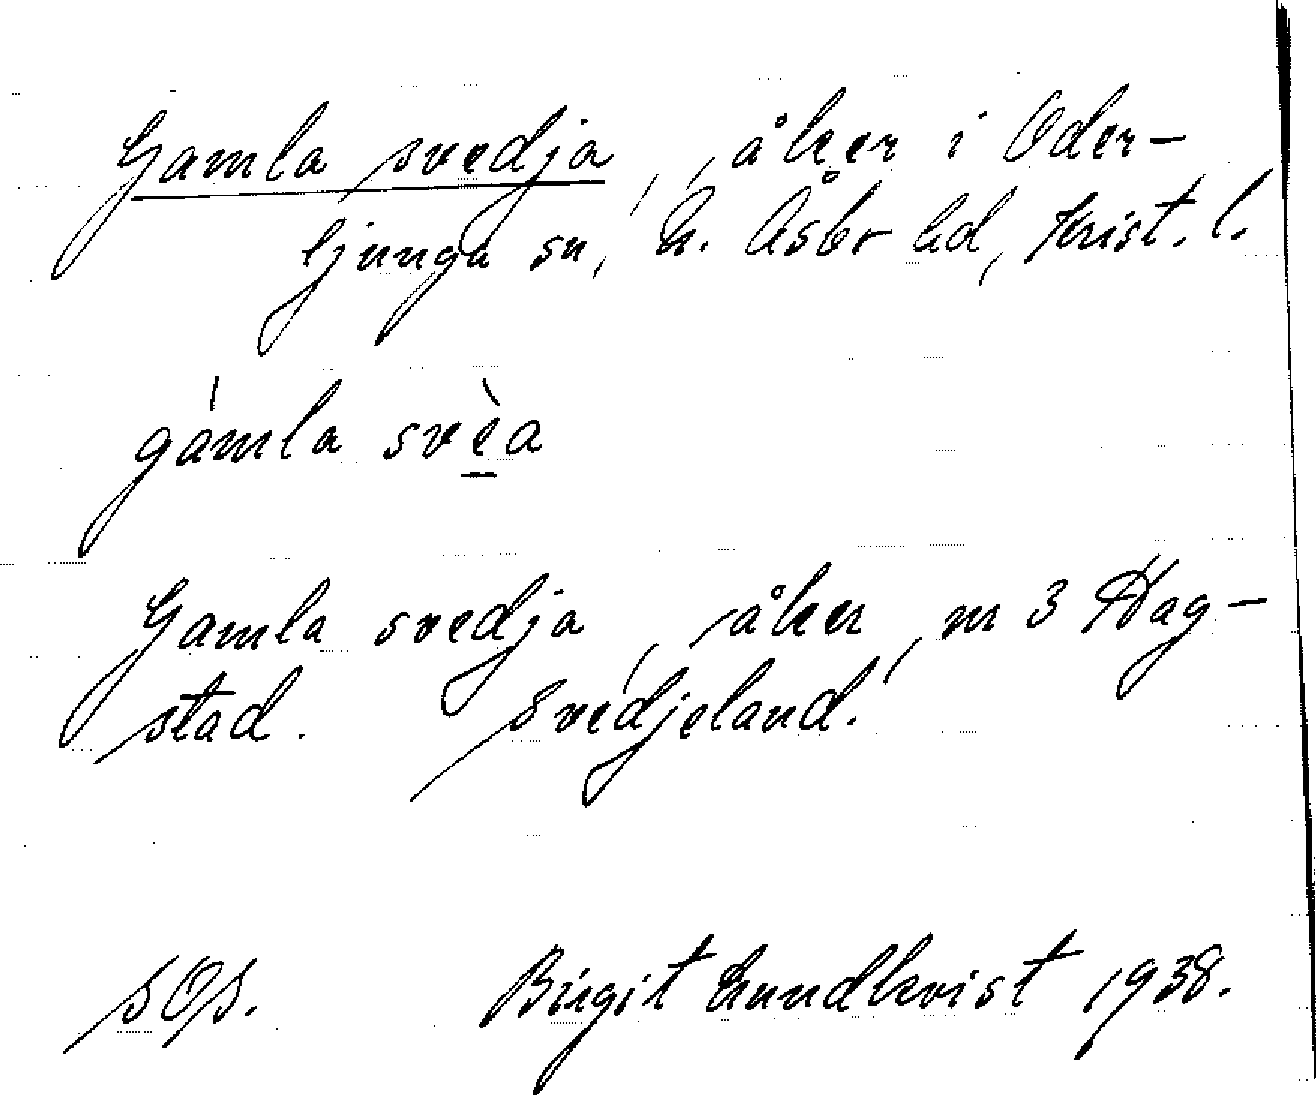 Gamla svedja, åker i Oder-
ljunga sn, N. Åsbo hd, Krist. l.
gámla svèa
Gamla svedja, åker, nr 3 Hag-
stad. Svedjeland.
SOS. Birgit Lundkvist 1938.